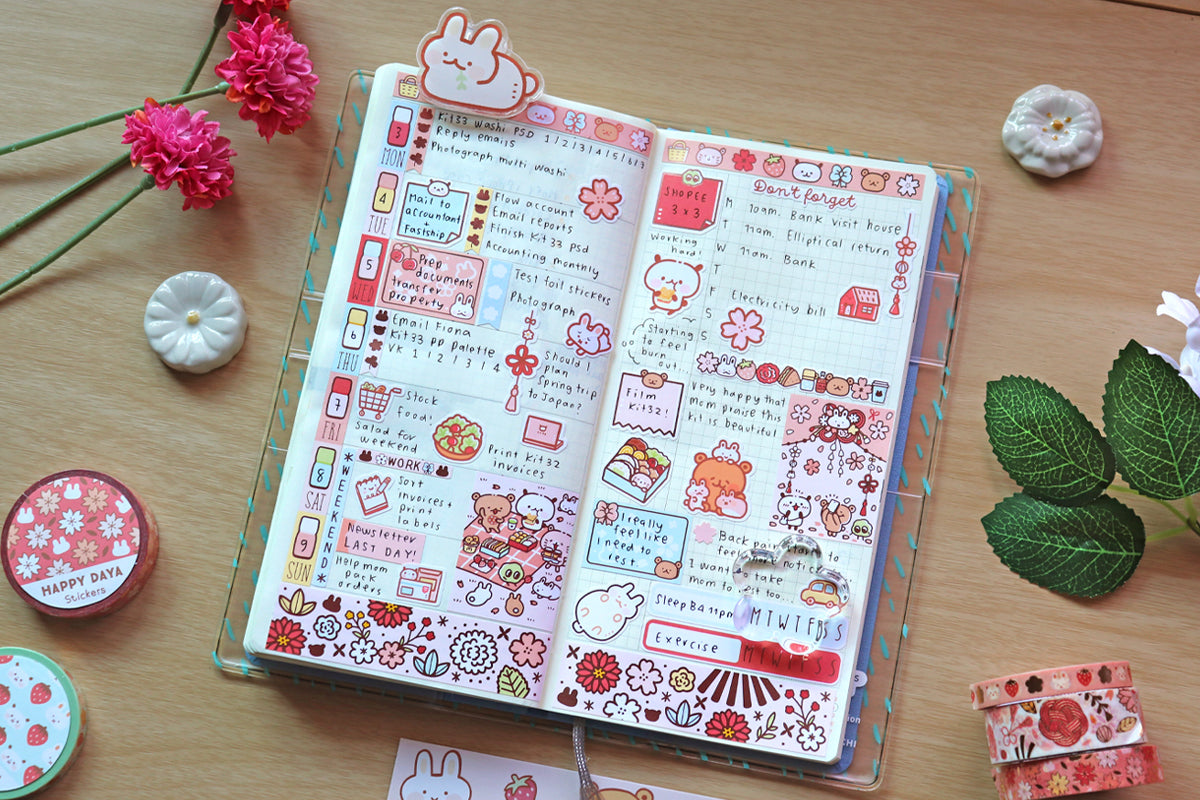 3
MON
Kit33 washi PSD 1/2/3/4/5/6/7
Reply emails
Photograph multi washi
4
TUE
Mail to
accountant
+
Fastship!
Flow account
Email reports
Finish Kit33 psd
Accounting monthly
5
WED
Prep
documents
transfer
property
Test foil stickers
Photograph
6
THU
Email Fiona
Kit33 PP Palette
VK 1/2/3/4
Should I
plan
Spring trip
to Japan?
7
FRI
Stock
food!
Salad for
weekend
Print Kit32
invoices
8
SAT
WEEKEND
WORK
Sort
invoices +
print
labels
9
SUN
Newsletter
LAST DAY!
Help mom
pack
orders
SHOPEE
3 x 3
Don't forget
M 10am. Bank visit house
T 11am. Elliptical return
W 11am. Bank
T
F Electricity bill
S
S
Working
hard!
Starting
to feel
burn
out..
Film
Kit32!
Very happy that
mom praise this
kit is beautiful
I really
feel like
I need to
rest.
Back pain
I want to take
mom to rest too
Sleep B4 11pm
MTWTFSS
Exercise
MTWTFSS
HAPPY DAYA
Stickers